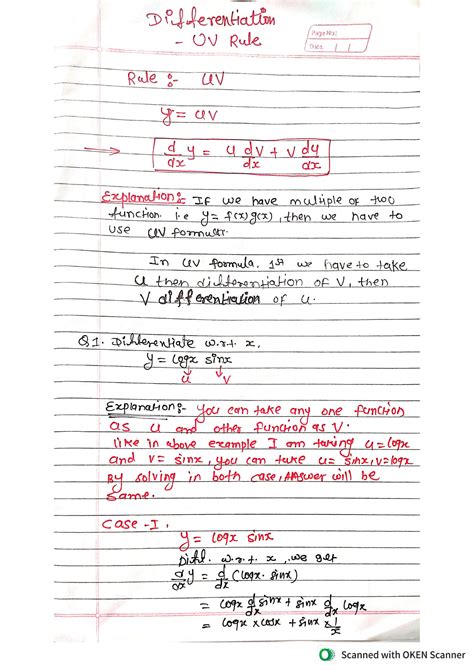 Differentiation
- UV Rule
Page No.:
Date: / /
Rule :- UV
y = uv
→ d/dx y = u dv/dx + v du/dx
Explanation:- If we have multiple of two
function i.e y = f(x)g(x), then we have to
use UV formula.
In UV formula, 1st we have to take
u then differentiation of V, then
V differentiation of u.
Q1. Differentiate w.r.t x,
y = logx sinx
u v
Explanation:- You can take any one function
as u and other function as V.
like in above example I am taking u = logx
and v = sinx, you can take u = sinx, v = logx
By solving in both case, Answer will be
same.
Case-I,
y = logx sinx
Diff. w.r.t. x, we get
d/dx y = d/dx (logx. sinx)
= logx d/dx sinx + sinx d/dx logx
= logx × cosx + sinx × 1/x
Scanned with OKEN Scanner